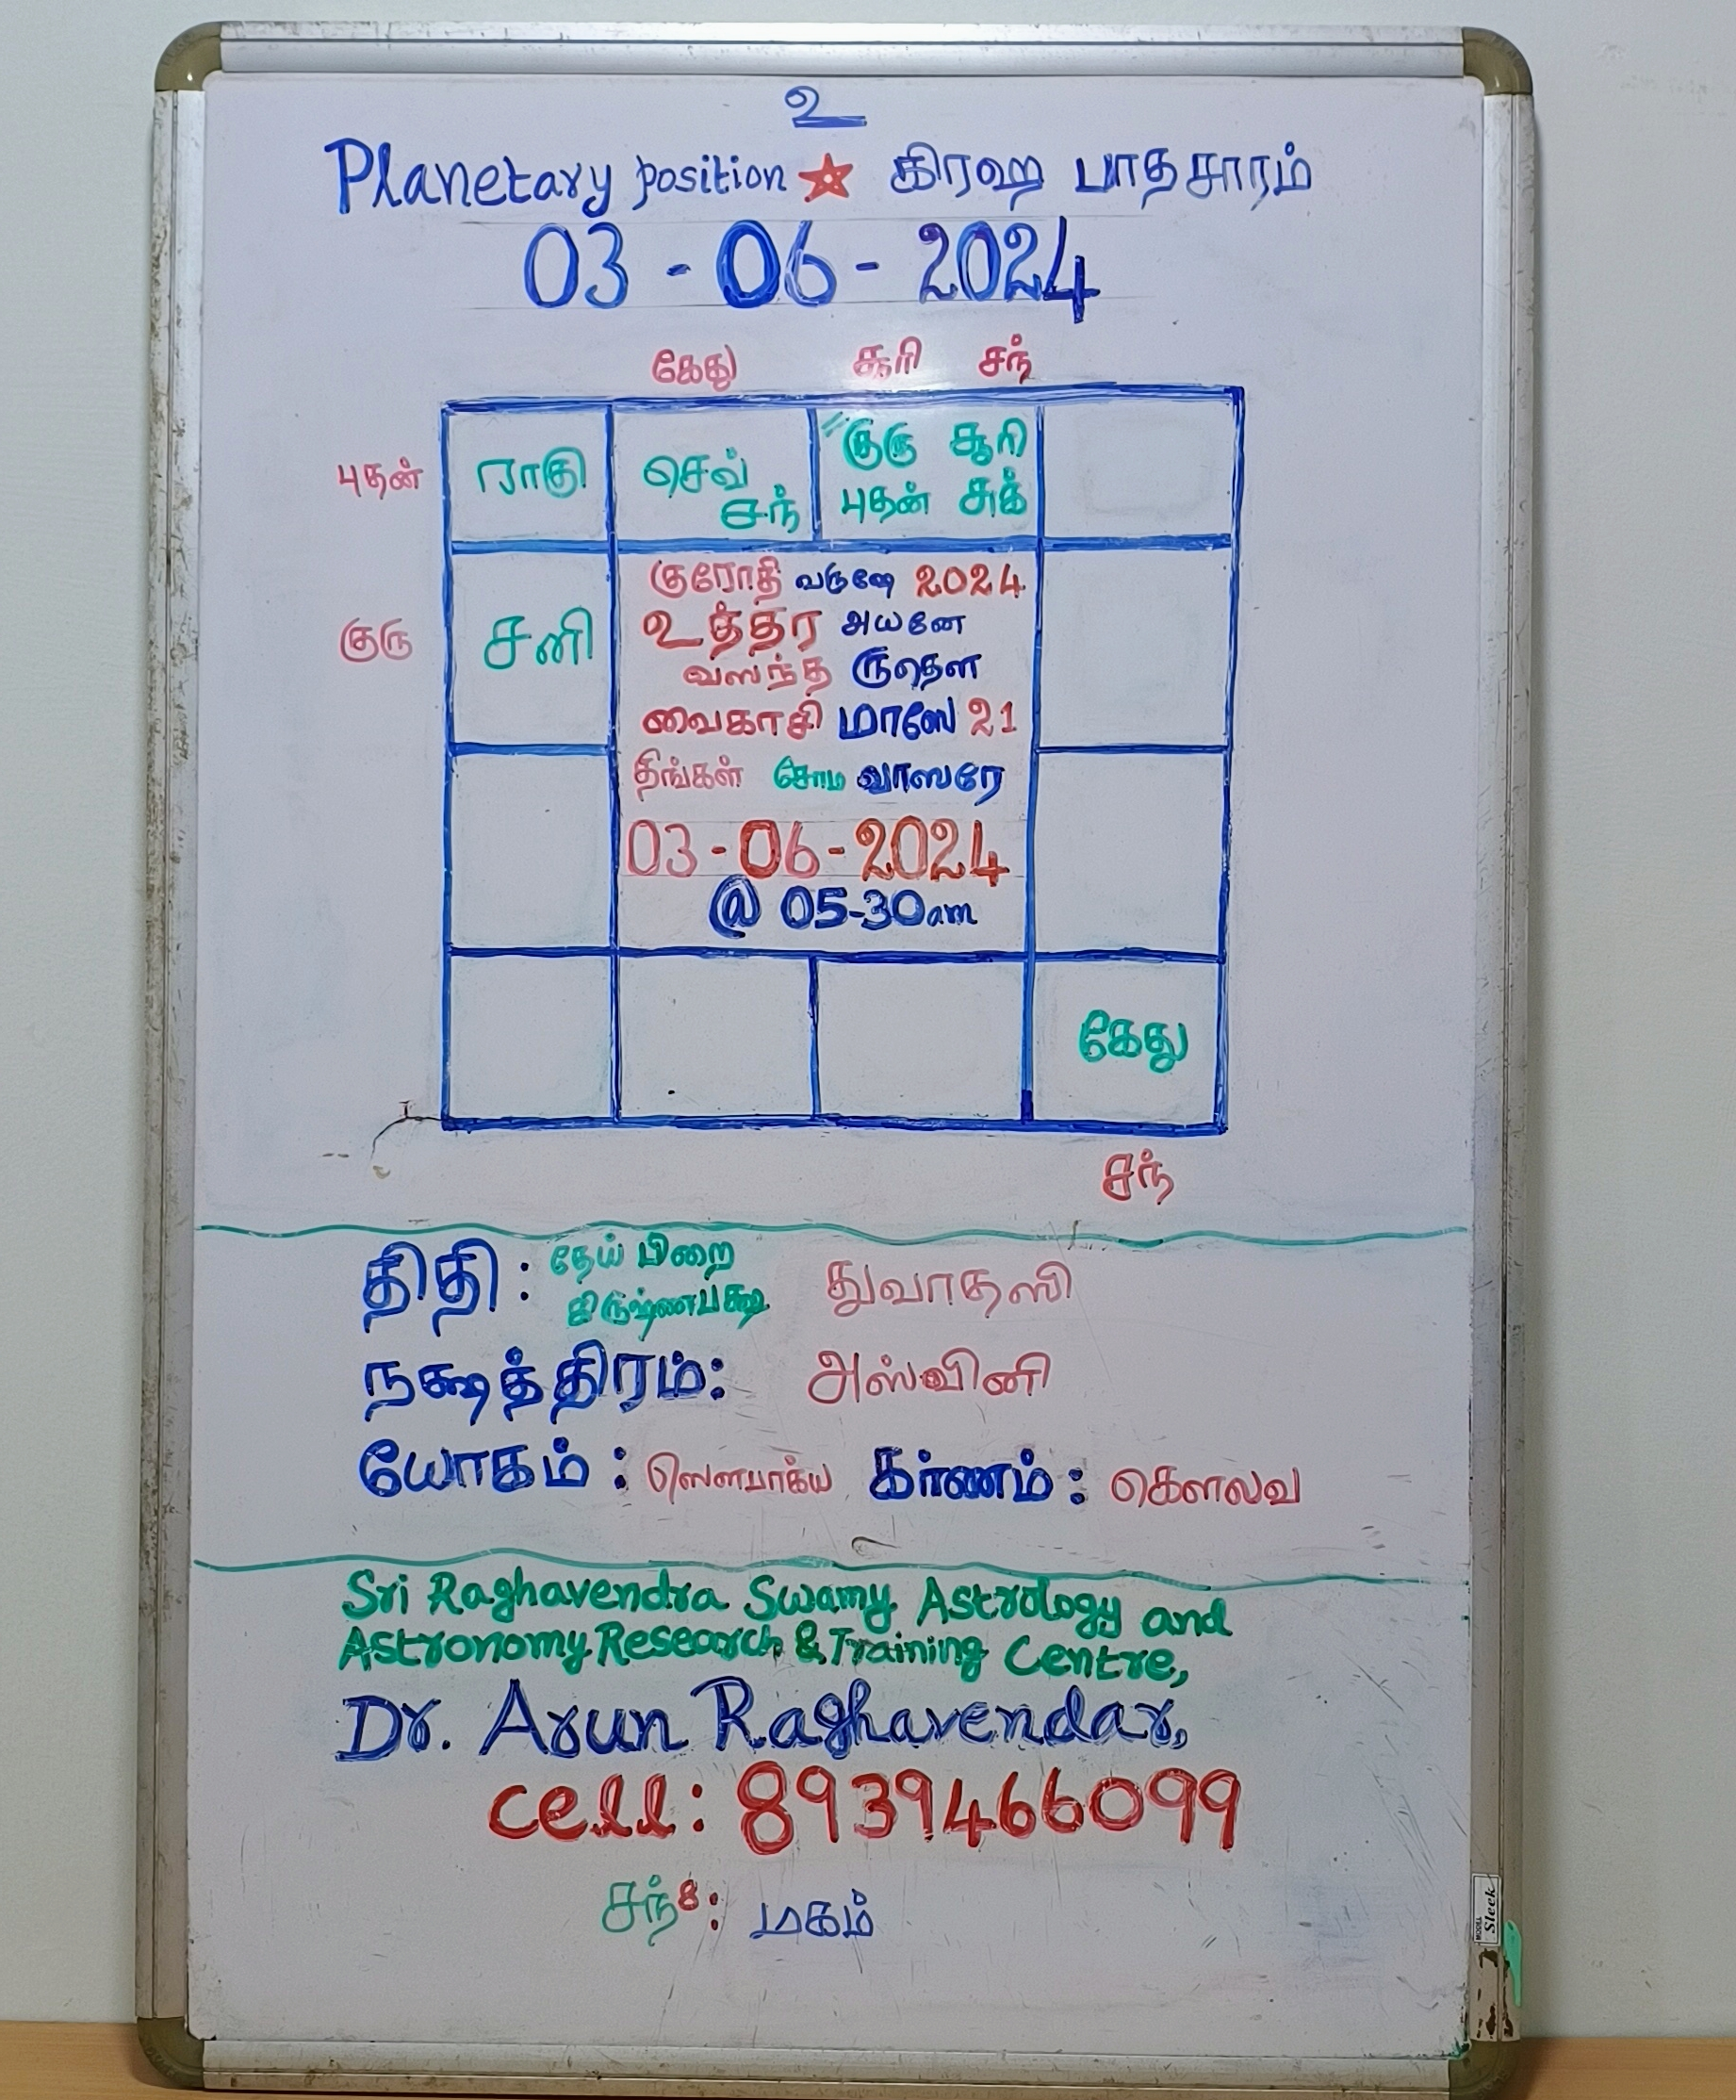 உ
Planetary position ☆ கிரஹ பாதசாரம்
03 - 06 - 2024
கேது சூரி சந்
புதன் ராகு செவ் சந் குரு சூரி புதன் சுக்
குரு சனி
குரோதி வருஷே 2024
உத்தர அயனே
வஸந்த ருதௌ
வைகாசி மாஸே 21
திங்கள் சோம வாஸரே
03 - 06 - 2024
@ 05-30am
கேது
சந்
திதி : தேய் பிறை கிருஷ்ணபக்ஷ துவாதஸி
நக்ஷத்திரம்: அஸ்வினி
யோகம் : ஸௌபாக்ய கர்ணம் : கௌலவ
Sri Raghavendra Swamy Astrology and
Astronomy Research & Training Centre,
Dr. Arun Raghavendar,
cell: 8939466099
சந்8: மகம்
MODEL Sleek